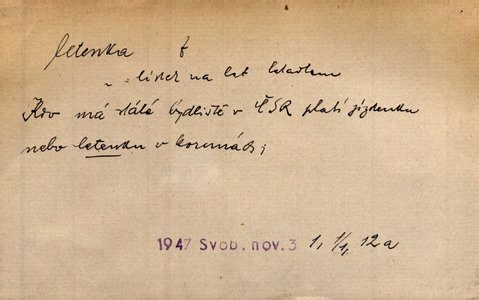 letenka f
lístek na let letadlem
Kdo má stálé bydliště v ČSR platí jízdenku
nebo letenku v korunách;
1947 Svob. nov. 3 1, 1/1, 12a